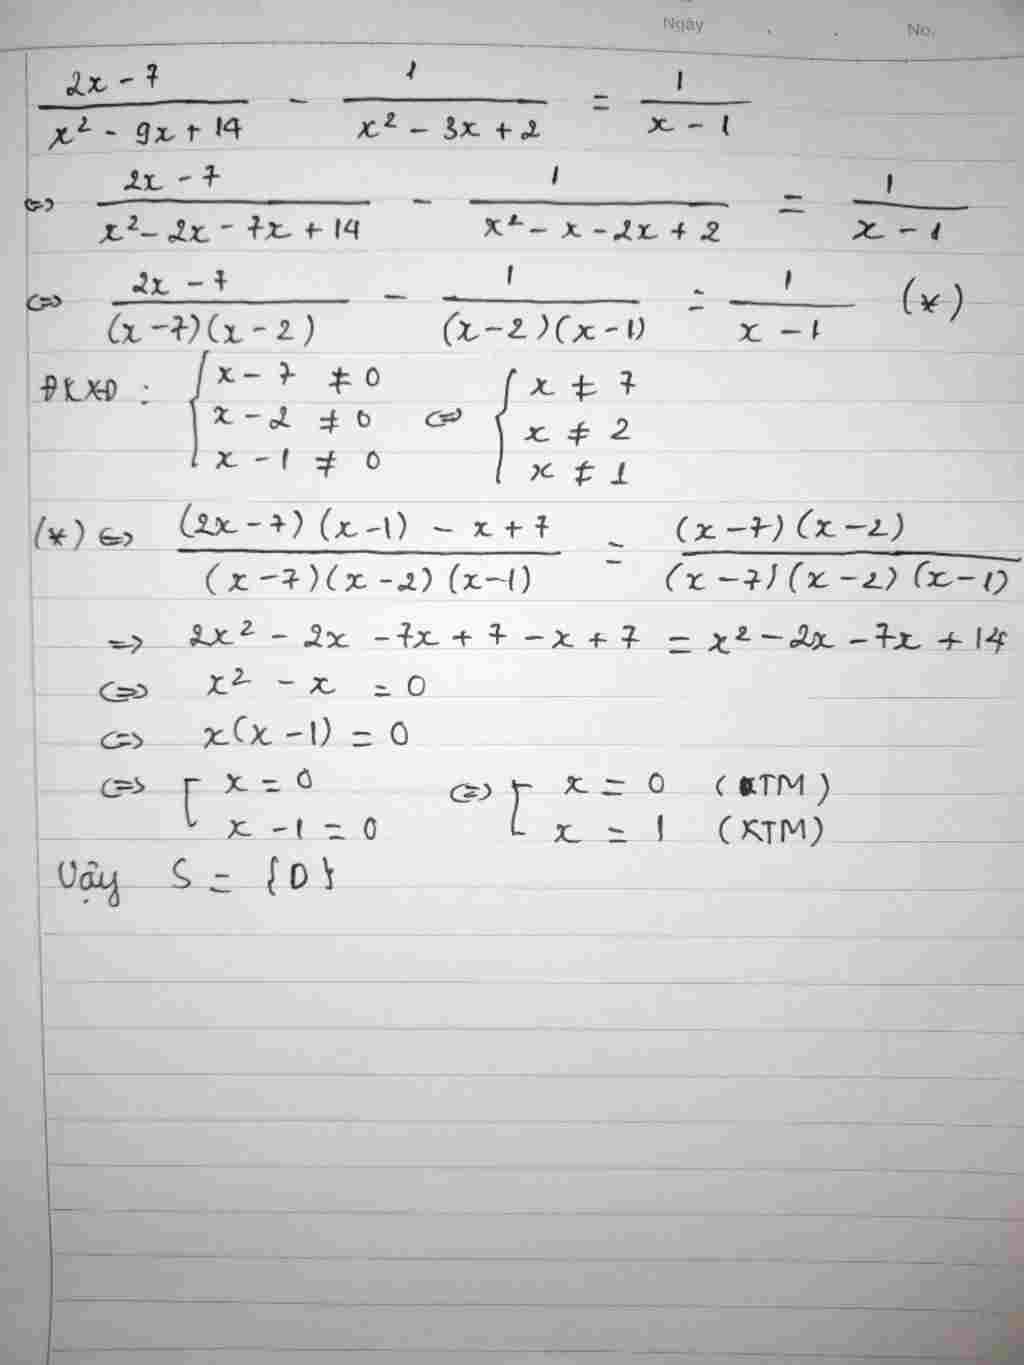 Ngày . . No.
(2x - 7)/(x² - 9x + 14) - 1/(x² - 3x + 2) = 1/(x - 1)
⇔ (2x - 7)/(x² - 2x - 7x + 14) - 1/(x² - x - 2x + 2) = 1/(x - 1)
⇔ (2x - 7)/((x - 7)(x - 2)) - 1/((x - 2)(x - 1)) = 1/(x - 1) (*)
ĐKXĐ : { x - 7 ≠ 0 ; x - 2 ≠ 0 ; x - 1 ≠ 0 ⇔ { x ≠ 7 ; x ≠ 2 ; x ≠ 1
(*) ⇔ ((2x - 7)(x - 1) - x + 7)/((x - 7)(x - 2)(x - 1)) = ((x - 7)(x - 2))/((x - 7)(x - 2)(x - 1))
⇒ 2x² - 2x - 7x + 7 - x + 7 = x² - 2x - 7x + 14
⇔ x² - x = 0
⇔ x(x - 1) = 0
⇔ [ x = 0 ⇔ [ x = 0 (TM)
x - 1 = 0 x = 1 (KTM)
Vậy S = {0}